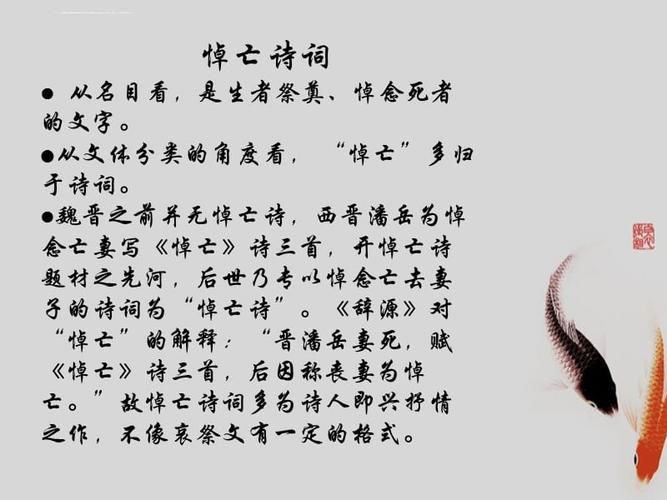 悼亡诗词
● 从名目看，是生者祭奠、悼念死者
的文字。
●从文体分类的角度看，“悼亡”多归
于诗词。
●魏晋之前并无悼亡诗，西晋潘岳为悼
念亡妻写《悼亡》诗三首，开悼亡诗
题材之先河，后世乃专以悼念亡去妻
子的诗词为“悼亡诗”。《辞源》对
“悼亡”的解释：“晋潘岳妻死，赋
《悼亡》诗三首，后因称丧妻为悼
亡。”故悼亡诗词多为诗人即兴抒情
之作，不像哀祭文有一定的格式。